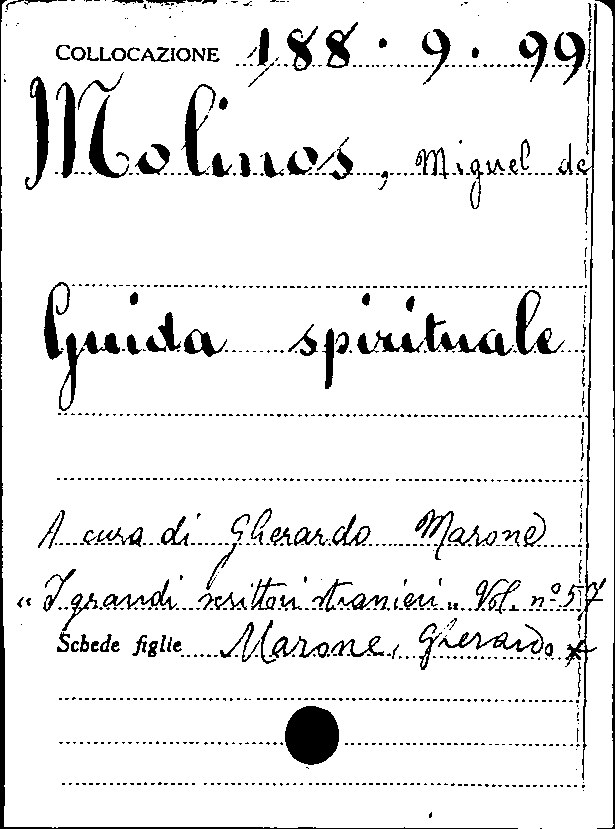 COLLOCAZIONE 188 · 9 · 99
Molinos, Miguel de
Guida spirituale
A cura di Gherardo Marone
“I grandi scrittori stranieri„ Vol. nº 57
Schede figlie Marone, Gherardo *